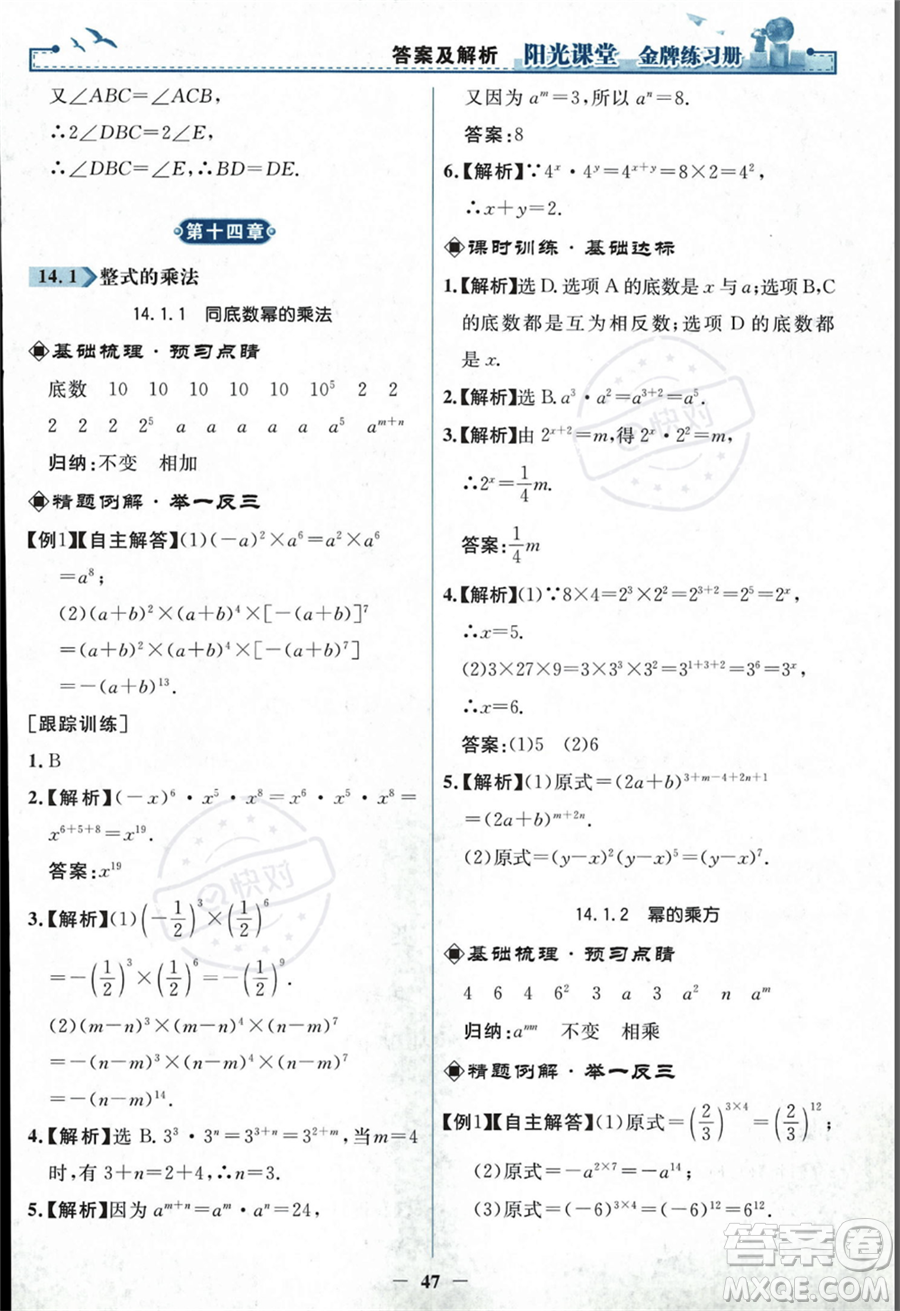 答案及解析 阳光课堂 金牌练习册
又∠ABC=∠ACB,
∴2∠DBC=2∠E,
∴∠DBC=∠E,∴BD=DE.
第十四章
14.1 整式的乘法
14.1.1 同底数幂的乘法
基础梳理·预习点睛
底数 10 10 10 10 10⁵ 2 2
2 2 2 2⁵ a a a a a a⁵ aᵐ⁺ⁿ
归纳:不变 相加
精题例解·举一反三
【例1】【自主解答】(1)(-a)²×a⁶=a²×a⁶
=a⁸;
(2)(a+b)²×(a+b)⁴×[-(a+b)]⁷
=(a+b)²×(a+b)⁴×[-(a+b)⁷]
=-(a+b)¹³.
[跟踪训练]
1.B
2.【解析】(-x)⁶·x⁵·x⁸=x⁶·x⁵·x⁸=
x⁶⁺⁵⁺⁸=x¹⁹.
答案:x¹⁹
3.【解析】(1)(-1/2)³×(-1/2)⁶
=-(1/2)³×(1/2)⁶=-(1/2)⁹.
(2)(m-n)³·(m-n)⁴×(n-m)⁷
=-(n-m)³×(n-m)⁴×(n-m)⁷
=-(n-m)¹⁴.
4.【解析】选 B.3³·3ⁿ=3³⁺ⁿ=3²⁺ᵐ,当 m=4
时,有 3+n=2+4,∴n=3.
5.【解析】因为 aᵐ⁺ⁿ=aᵐ·aⁿ=24,
又因为 aᵐ=3,所以 aⁿ=8.
答案:8
6.【解析】∵4ˣ·4ʸ=4ˣ⁺ʸ=8×2=4²,
∴x+y=2.
课时训练·基础达标
1.【解析】选 D.选项 A 的底数是 x 与 a;选项B,C
的底数都是互为相反数;选项 D 的底数都
是 x.
2.【解析】选 B.a³·a²=a³⁺²=a⁵.
3.【解析】由 2ˣ⁺²=m,得 2ˣ·2²=m,
∴2ˣ=1/4m.
答案:1/4m
4.【解析】(1)∵8×4=2³×2²=2⁵=2ˣ,
∴x=5.
(2)3×27×9=3×3³×3²=3¹⁺³⁺²=3⁶=3ˣ,
∴x=6.
答案:(1)5 (2)6
5.【解析】(1)原式=(2a+b)³⁺ᵐ⁻⁴⁺²ⁿ⁺¹
=(2a+b)ᵐ⁺²ⁿ.
(2)原式=(y-x)²(y-x)⁵=(y-x)⁷.
14.1.2 幂的乘方
基础梳理·预习点睛
4 6 4 6² 3 a 3 a² n aᵐ
归纳:aᵐⁿ 不变 相乘
精题例解·举一反三
【例1】【自主解答】(1)原式=(2/3)³ˣ⁴=(2/3)¹²;
(2)原式=-a²ˣ⁷=-a¹⁴;
(3)原式=(-6)³ˣ⁴=(-6)¹²=6¹²;
47
快对
快对
答案圈
MXQE.COM